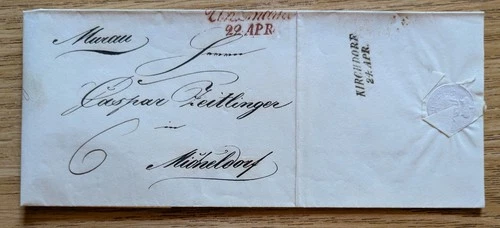 22. APR.
Murau
Herrn
Caspar Zeitlinger
in
6
Micheldorf
KIRCHDORF
24. APR.